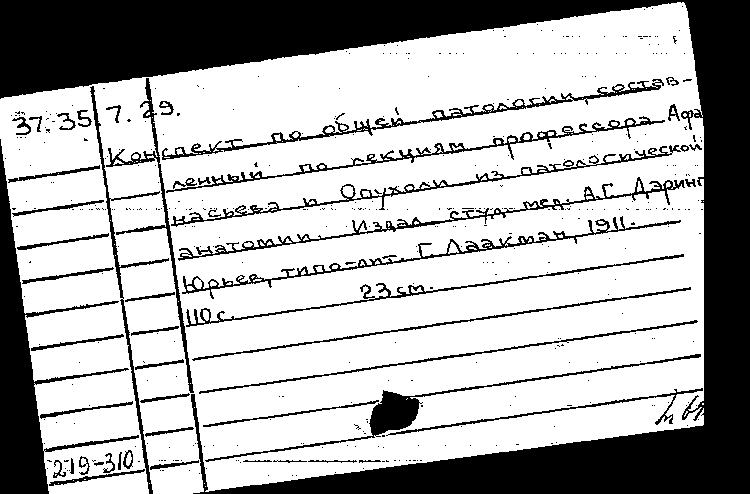 37.35 7.29.
Конспект по общей патологии, состав-
ленный по лекциям профессора Афа
насьева и Опухоли из патологической
анатомии. Издал студ. мед. А.Г. Дэринг
Юрьев, типо-лит. Г. Лаакман, 1911.
110 с. 23 см.
219-310